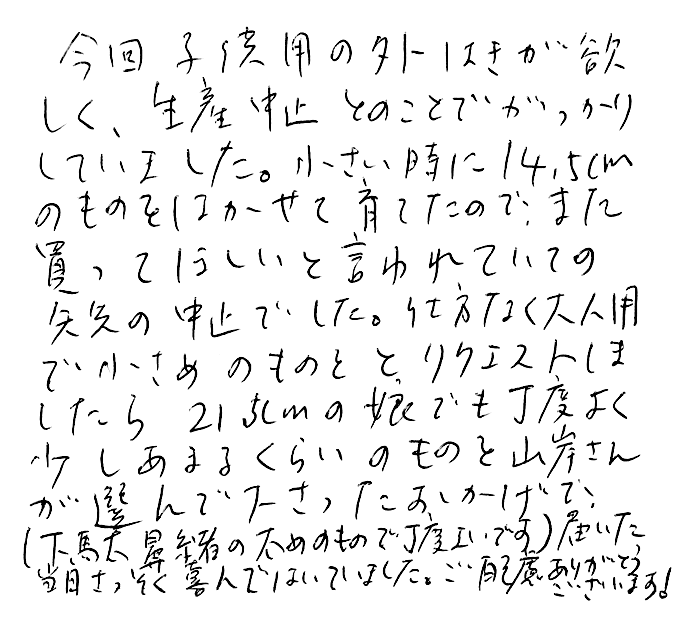 今回 子供用の外ばきが欲
しく、生産中止とのことでがっかり
していました。小さい時に14.5cm
のものをはかせて育てたので、また
買ってほしいと言われていての
矢先の中止でした。仕方なく大人用
で小さめのものをと、リクエストしま
したら 21.5cmの娘でも丁度よく
少しあまるくらいのものを山岸さん
が選んで下さったおかげで、
(下駄 鼻緒の太めのもので丁度互いです)届いた
当日さっそく喜んではいていました。ご配慮ありがとう
ございます!